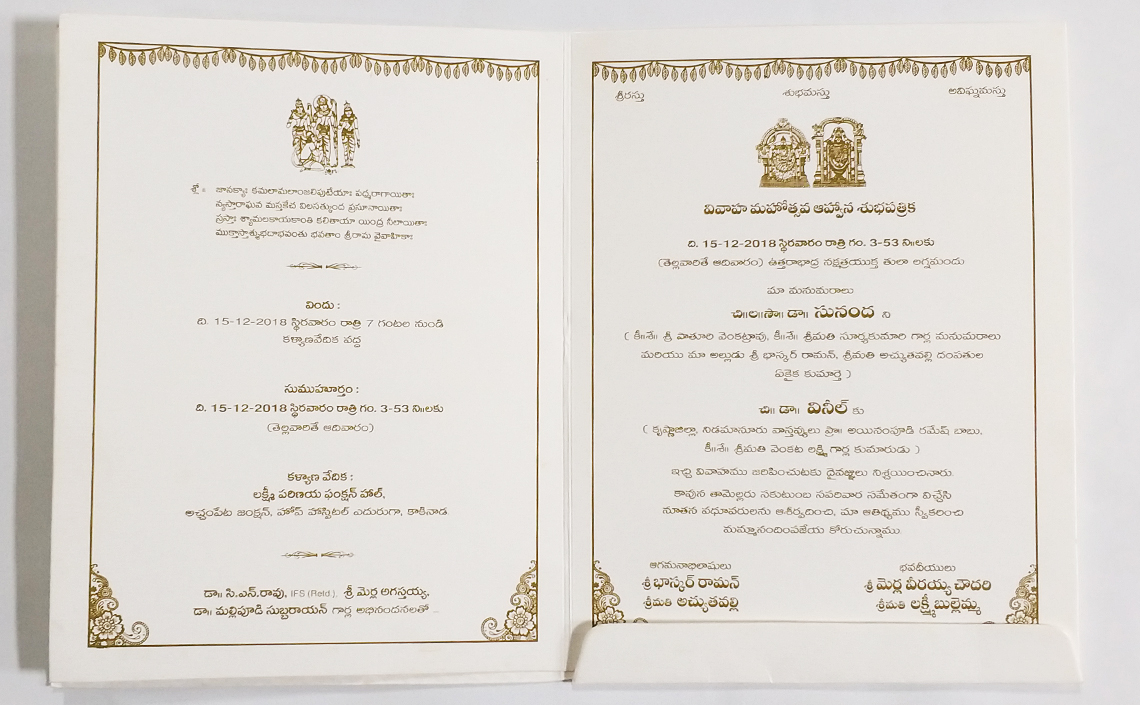 శ్లో॥ జానక్యాః కమలామలాంజలిపుటేయాః పద్మరాగాయితాః
న్యస్తారాఘవ మస్తకేచ విలసత్కుంద ప్రసూనాయితాః
స్రస్తాః శ్యామలకాయకాంతి కలితాయా యింద్ర నీలాయితాః
ముక్తాస్తాశ్శుభదాభవంతు భవతాం శ్రీరామ వైవాహికాః
విందు :
ది. 15-12-2018 స్థిరవారం రాత్రి 7 గంటల నుండి
కళ్యాణవేదిక వద్ద
సుముహూర్తం :
ది. 15-12-2018 స్థిరవారం రాత్రి గం. 3-53 ని॥లకు
(తెల్లవారితే ఆదివారం)
కళ్యాణ వేదిక :
లక్ష్మీ పరిణయ ఫంక్షన్ హాల్,
అచ్చంపేట జంక్షన్, హోప్ హాస్పిటల్ ఎదురుగా, కాకినాడ.
డా॥ సి.ఎన్.రావు, IFS (Retd.), శ్రీ మెర్ల అగస్త్యయ్య,
డా॥ మల్లిపూడి సుబ్బరాయన్ గార్ల అభినందనలతో ...
శ్రీరస్తు శుభమస్తు అవిఘ్నమస్తు
వివాహ మహోత్సవ ఆహ్వాన శుభపత్రిక
ది. 15-12-2018 స్థిరవారం రాత్రి గం. 3-53 ని॥లకు
(తెల్లవారితే ఆదివారం) ఉత్తరాభాద్ర నక్షత్రయుక్త తులా లగ్నమందు
మా మనుమరాలు
చి॥ల॥సౌ॥ డా॥ సునంద ని
( కీ॥శే॥ శ్రీ వాతూరి వెంకట్రావు, కీ॥శే॥ శ్రీమతి సూర్యకుమారి గార్ల మనుమరాలు
మరియు మా అల్లుడు శ్రీ భాస్కర్ రామన్, శ్రీమతి అచ్యుతవల్లి దంపతుల
ఏకైక కుమార్తె )
చి॥ డా॥ వినీల్ కు
( కృష్ణాజిల్లా, నిడమానూరు వాస్తవ్యులు ప్రొ॥ అయినంపూడి రమేష్ బాబు,
కీ॥శే॥ శ్రీమతి వెంకట లక్ష్మి గార్ల కుమారుడు )
ఇచ్చి వివాహము జరిపించుటకు దైవజ్ఞులు నిశ్చయించినారు.
కావున తామెల్లరు సకుటుంబ సపరివార సమేతంగా విచ్చేసి
నూతన వధూవరులను ఆశీర్వదించి, మా ఆతిథ్యము స్వీకరించి
మమ్మానందింపజేయ కోరుచున్నాము.
ఆగమనాభిలాషులు
శ్రీ భాస్కర్ రామన్
శ్రీమతి అచ్యుతవల్లి
భవదీయులు
శ్రీ మెర్ల వీరయ్య చౌదరి
శ్రీమతి లక్ష్మీబుల్లెమ్మ